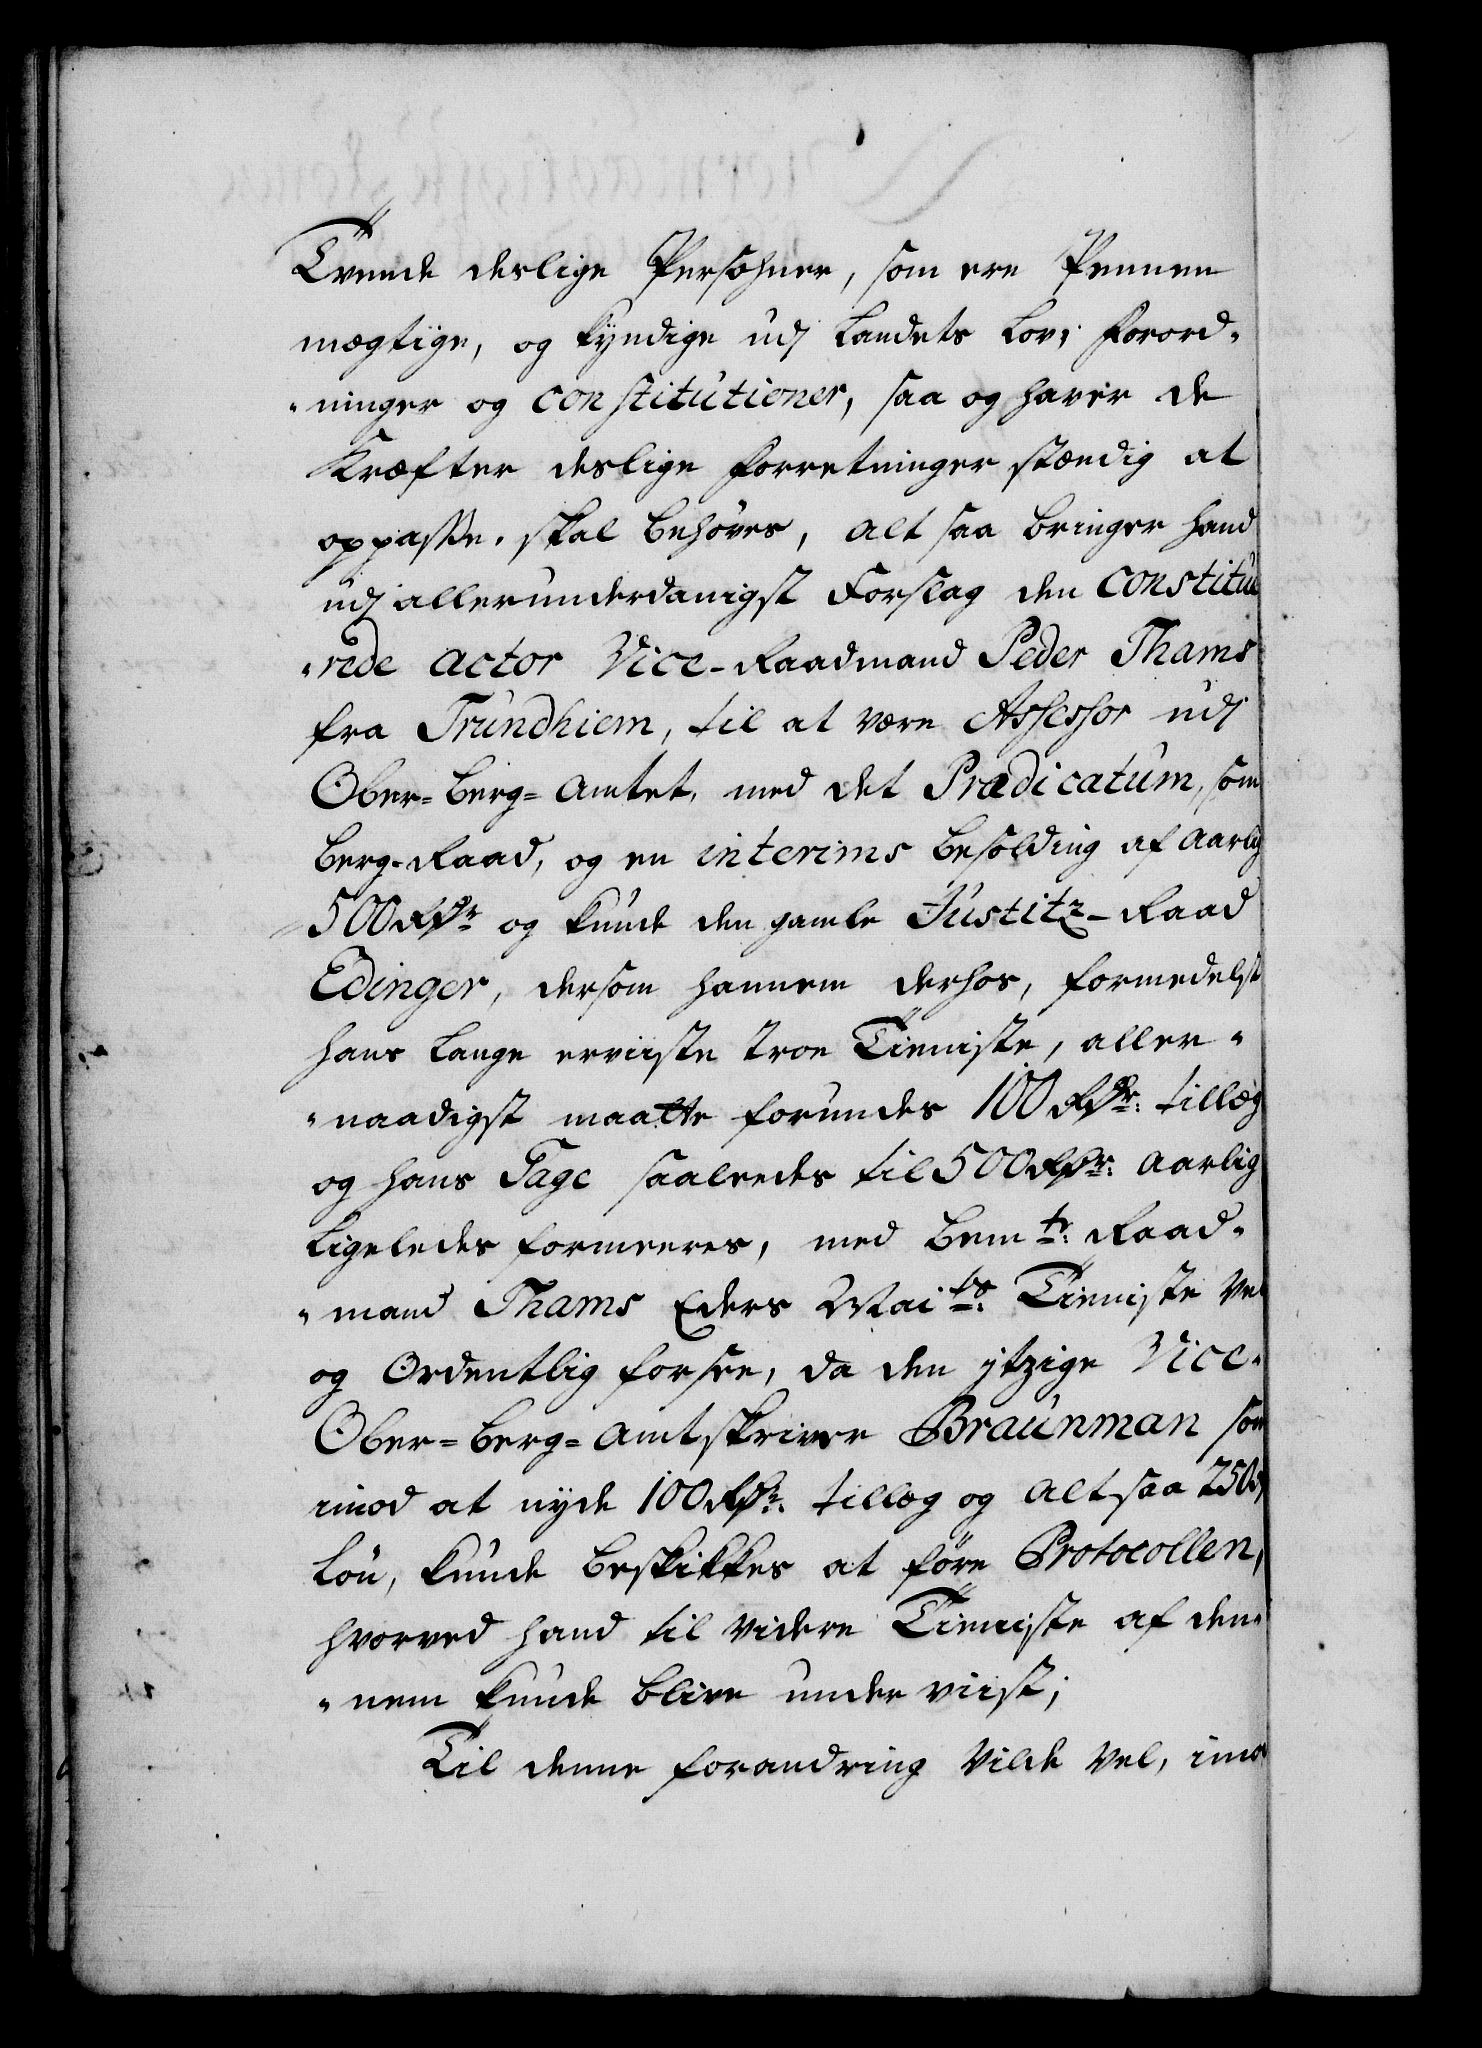 Tvende deslige Persohner, som ere Pennen
mægtige, og kyndige udj Landets Lov, Forord-
-ninger og constitutioner, saa og haver de
Kræfter deslige Forretninger stændig at
oppasse, skal behöves, alt saa bringer hand
udj allerunderdanigst Forslag den constitue
-rede actor Vice-Raadmand Peder Thams
fra Trundhiem, til at være Assessor udj
Ober-Berg-Amtet, med det Prædicatum, som
Berg-Raad, og en interims besolding af aarlig
500 Rdr og kunde den gamle Justitz-Raad
Edinger, dersom hannem derhos, formedelst
hans lange erviiste troe Tienniste, aller-
-naadigst maatte forundes 100 Rdr: tillæg
og hans Gage saaledes til 500 Rdr: aarlig
ligeledes formeeres, med bemte: Raad-
-mand Thams Eders Maits: Tienniste vel
og Ordentlig forsee, da den itzige Vice-
Ober-Berg-Amtskriver Braunman som
imod at nyde 100 Rdr: tillæg og alt saa 250
Lön, kunde beskikkes at före Protocollen,
hvorved hand til videre Tienniste af den-
-nem kunde blive under viist;
Til denne forandring vilde vel, imod